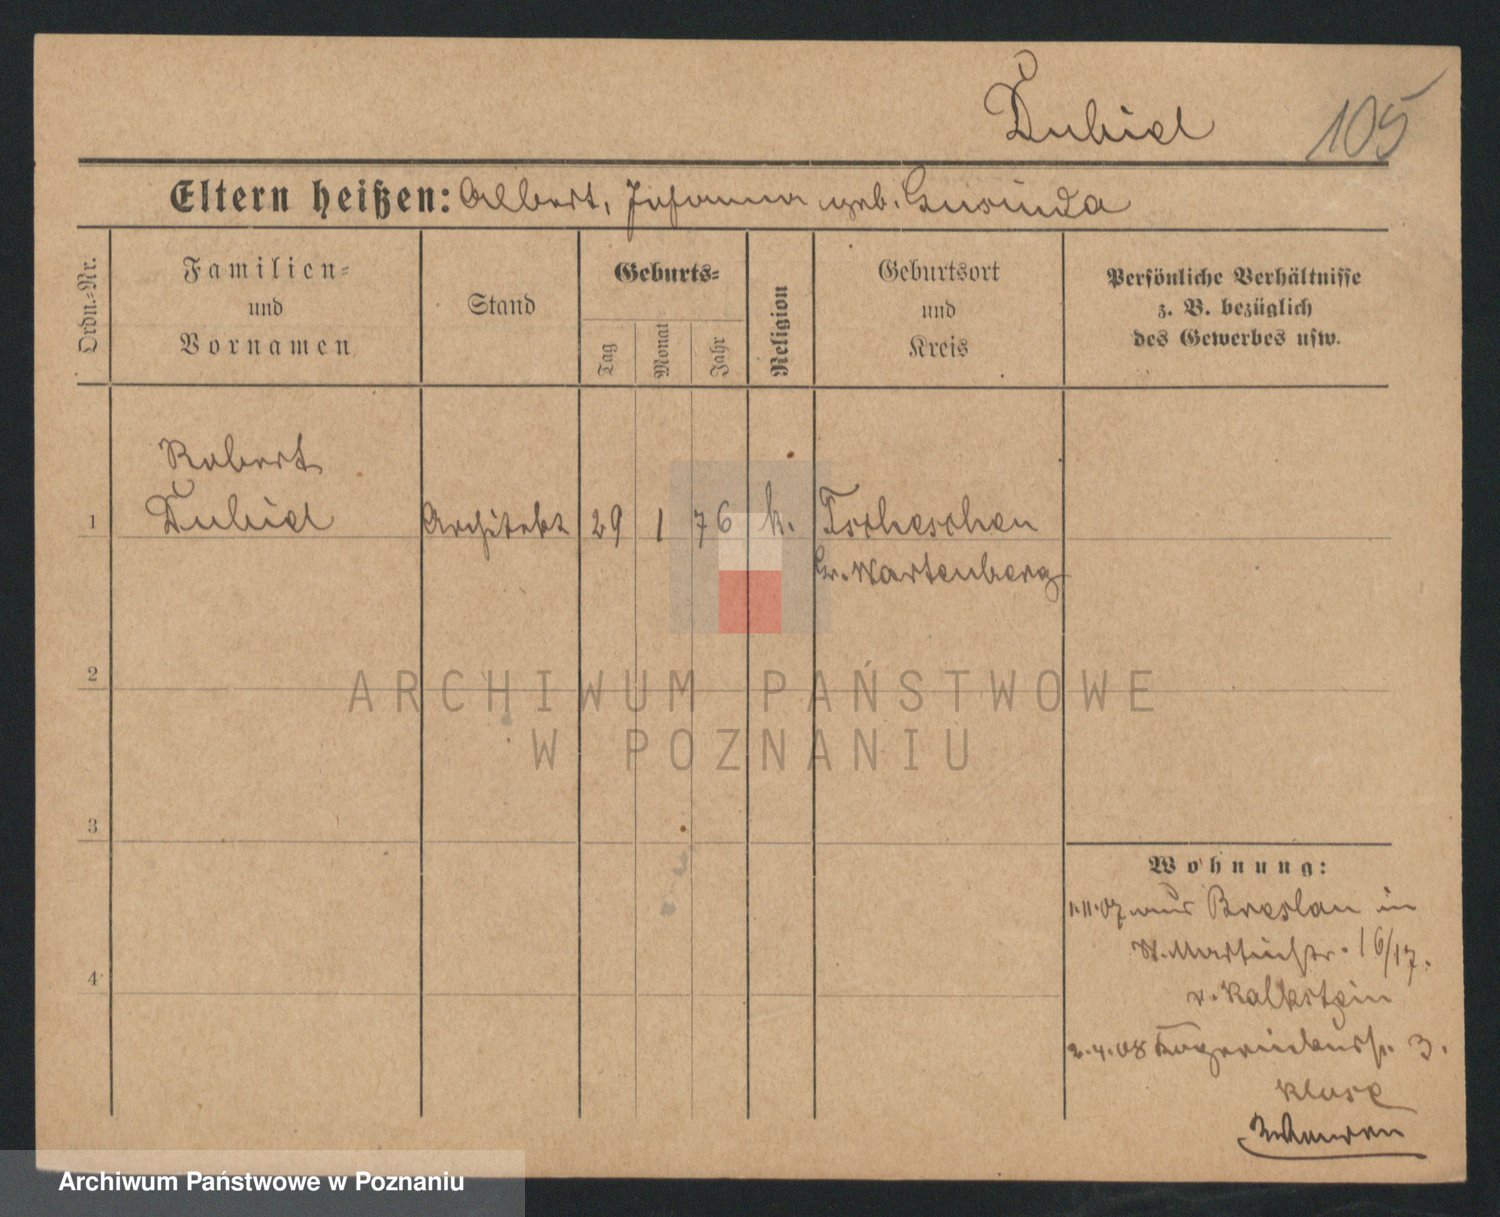 Dubiel
105
Eltern heißen: Albert, Johanna geb.
Ordn.-Nr.
Familien-
und
Vornamen
Stand
Geburts-
Tag
Monat
Jahr
Religion
Geburtsort
und
Kreis
Persönliche Verhältnisse
z. B. bezüglich
des Gewerbes usw.
Robert
1 Dubiel Architekt 29 1 76 k. Tscheschen
Kr. Wartenberg
2
ARCHIWUM PAŃSTWOWE
W POZNANIU
3
Wohnung:
1.11.07 aus Breslau in
St. Martinstr. 16/17.
4
v. Kalkstein
2.4.08 3.
Archiwum Państwowe w Poznaniu